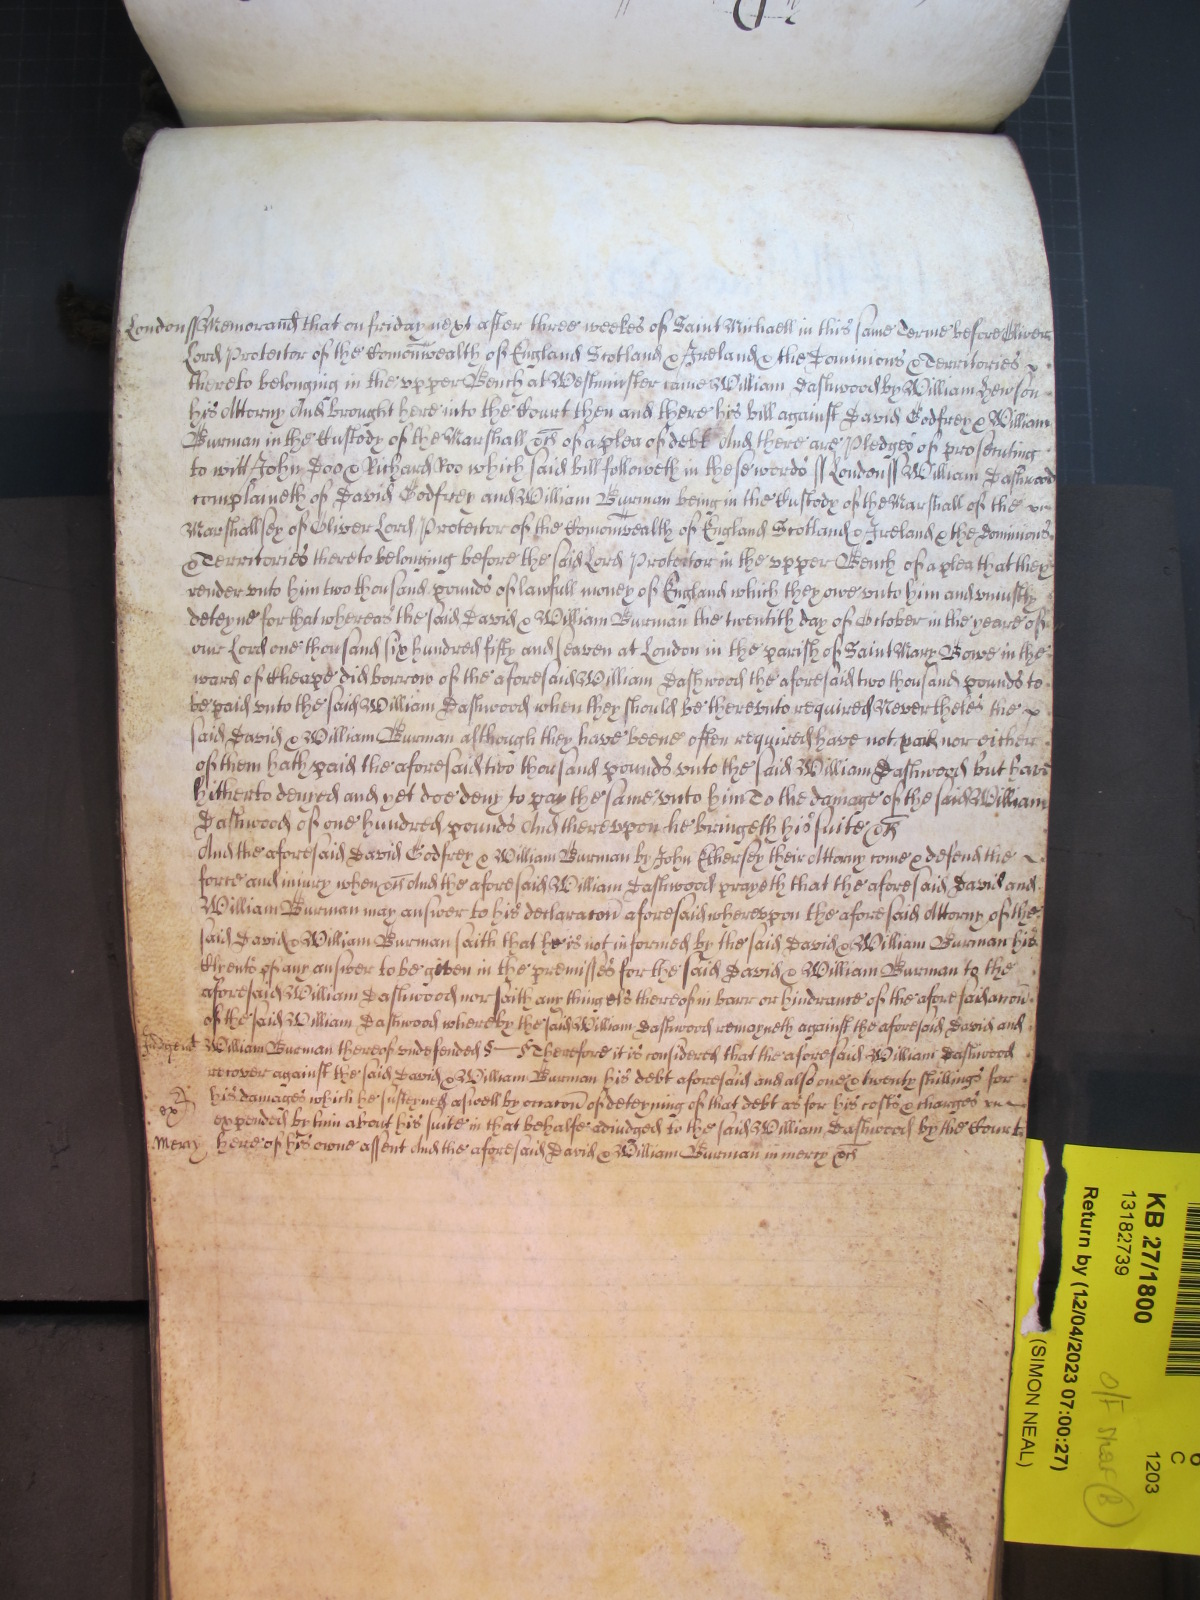 London ss Memorand that on friday next after three weekes of Saint Michaell in this same Terme before Oliver
Lord Protector of the Comonwealth of England Scotland & Ireland & the Dominions & Territories
thereto belonging in the vpper Bench at Westminster came William Dashwood by William Hewson
his Attorny And brought here into the Court then and there his bill against David Godfrey & William
Burman in the Custody of the Marshall &c of a plea of debt And there are Pledges of prosecuting
to witt John Doo & Richard Roo which said bill followeth in these words ss London ss William Dashwood
complaineth of David Godfrey and William Burman being in the Custody of the Marshall of the
Marshallsey of Oliver Lord Protector of the Comonwealth of England Scotland & Ireland & the Dominions
& Territories thereto belonging before the said Lord Protector in the vpper Bench of a plea that they
render vnto him two thousand pounds of lawfull money of England which they owe vnto him and vniustly
deteyne for that whereas the said David & William Burman the twentith day of October in the yeare of
our Lord one thousand six hundred fifty and seaven at London in the parish of Saint Mary Bowe in the
ward of Cheape did borrow of the aforesaid William Dashwood the aforesaid two thousand pounds to
be paid vnto the said William Dashwood when they should be therevnto required Neverthelesse the
said David & William Burman although they have beene often required have not paid nor either
of them hath paid the aforesaid two thousand pounds vnto the said William Dashwood but have
hitherto denyed and yet doe deny to pay the same vnto him To the damage of the said William
Dashwood of one hundred pounds And therevpon he bringeth his suite &c
And the aforesaid David Godfrey & William Burman by John their Attorny come & defend the
force and injury when &c And the aforesaid William Dashwood prayeth that the aforesaid David and
William Burman may answer to his declaracon aforesaid wherevpon the aforesaid Attorny of the
said David & William Burman saith that he is not informed by the said David & William Burman his
Clyents of any answer to be given in the premisses for the said David & William Burman to the
aforesaid William Dashwood nor saith any thing els thereof in barr or hindrance of the aforesaid accon
of the said William Dashwood whereby the said William Dashwood remayneth against the aforesaid David and
Judgemt William Burman thereof vndefended Therefore it is considered that the aforesaid William Dashwood
recover against the said David & William Burman his debt aforesaid and also one & twenty shillings for
his damages which he susteyned aswell by occacon of deteyning of that debt as for his costs & charges
ex expended by him about his suite in that behalfe adiudged to the said William Dashwood by the Court
Mercy here of his owne assent And the aforesaid David & William Burman in mercy &c
KB 27/1800
13182739
Return by (12/04/2023 07:00:27)
(SIMON NEAL)
1203
C
6